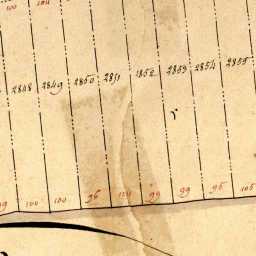 100 104
2848 2849 2850 2851 2852 2853 2854 2855
100 100 96 114 99 99 95 105